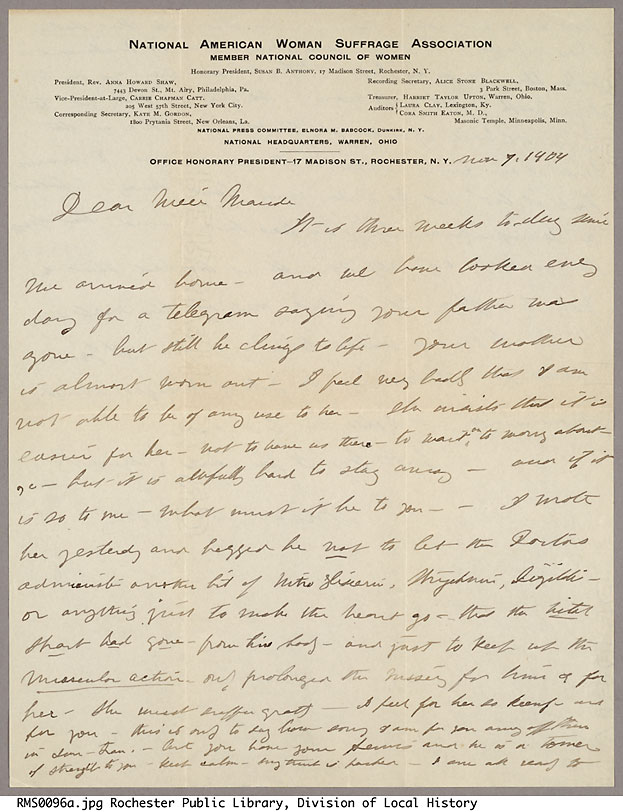 NATIONAL AMERICAN WOMAN SUFFRAGE ASSOCIATION
MEMBER NATIONAL COUNCIL OF WOMEN
Honorary President, SUSAN B. ANTHONY, 17 Madison Street, Rochester, N. Y.
President, Rev. ANNA HOWARD SHAW,
7443 Devon St., Mt. Airy, Philadelphia, Pa.
Vice-President-at-Large, CARRIE CHAPMAN CATT,
205 West 57th Street, New York City.
Corresponding Secretary, KATE M. GORDON,
1800 Prytania Street, New Orleans, La.
Recording Secretary, ALICE STONE BLACKWELL,
3 Park Street, Boston, Mass.
Treasurer, HARRIET TAYLOR UPTON, Warren, Ohio.
Auditors { LAURA CLAY, Lexington, Ky.
CORA SMITH EATON, M. D.,
Masonic Temple, Minneapolis, Minn.
NATIONAL PRESS COMMITTEE, ELNORA M. BABCOCK, DUNKIRK, N. Y.
NATIONAL HEADQUARTERS, WARREN, OHIO
OFFICE HONORARY PRESIDENT—17 MADISON ST., ROCHESTER, N. Y. Nov 7, 1904
Dear Niece Maude
It is three weeks to-day since
we arrived home - and we have looked every
day for a telegram saying your father was
gone - but still he clings to life - your mother
is almost worn out - I feel very badly that I am
not able to be of any use to her - she insists that it is
easier for her - not to have us there - to wait on, to worry about -
but it is awfully hard to stay away - and if it
is so to me - what must it be to you - - I wrote
her yesterday and begged he not to let the Doctors
administer another bit of Nitro Glycerin, Strychnine, Digitli -
or anything just to make the heart go - that the vital
spark had gone - from his body - and just to keep up the
muscular action - only prolonged the misery for him & for
her - She must suffer greatly - I feel for her so keenly and
for you - this is only to say how sorry I am for you away off there
in San - Fran. - but you have your Lewis and he is a tower
of strength to you - keep calm - is harder - I am all ready to
RMS0096a.jpg Rochester Public Library, Division of Local History